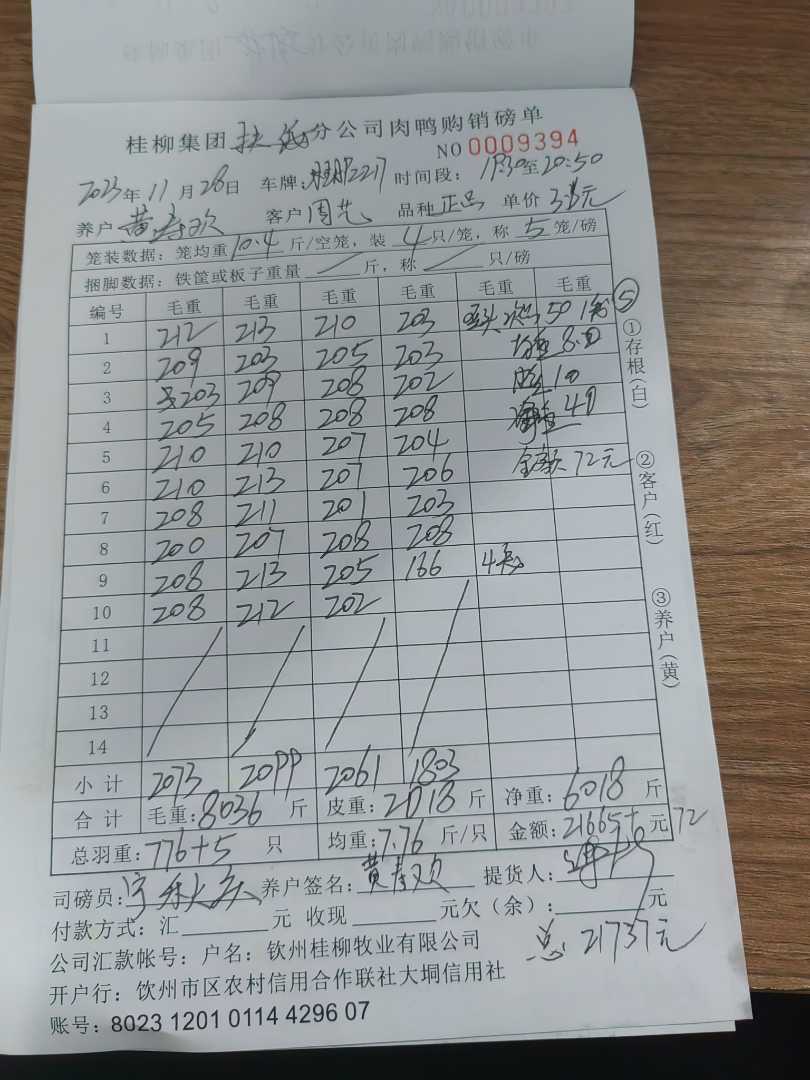 桂柳集团 分公司肉鸭购销磅单
NO 0009394
2023年11月28日 车牌: 2217 时间段: 至20:50
养户 黄寿欢 客户 周艺 品种 正品 单价 元
笼装数据: 笼均重 10.4 斤/空笼, 装 4 只/笼, 称 5 笼/磅
捆脚数据: 铁筐或板子重量 / 斤, 称 / 只/磅
编号 毛重 毛重 毛重 毛重 毛重 毛重
1 212 213 210 203 50
2 209 203 205 203
3 203 209 208 202 10
4 205 208 208 208 49
5 210 210 207 204
6 210 213 207 206 金额 72元
7 208 211 201 203
8 200 207 208 208
9 208 213 205 166
10 208 212 202
11
12
13
14
小计 2073 2099 2061 1803
合计 毛重: 8036 斤 皮重: 2018 斤 净重: 6018 斤
总羽重: 776+5 只 均重: 7.76 斤/只 金额: 21665+ 元 72
司磅员: 养户签名: 黄寿欢 提货人:
付款方式: 汇 元 收现 元欠(余): 元
公司汇款帐号: 户名: 钦州桂柳牧业有限公司
总: 21737元
开户行: 钦州市区农村信用合作联社大垌信用社
账号: 8023 1201 0114 4296 07
5
①存根(白)
②客户(红)
③养户(黄)